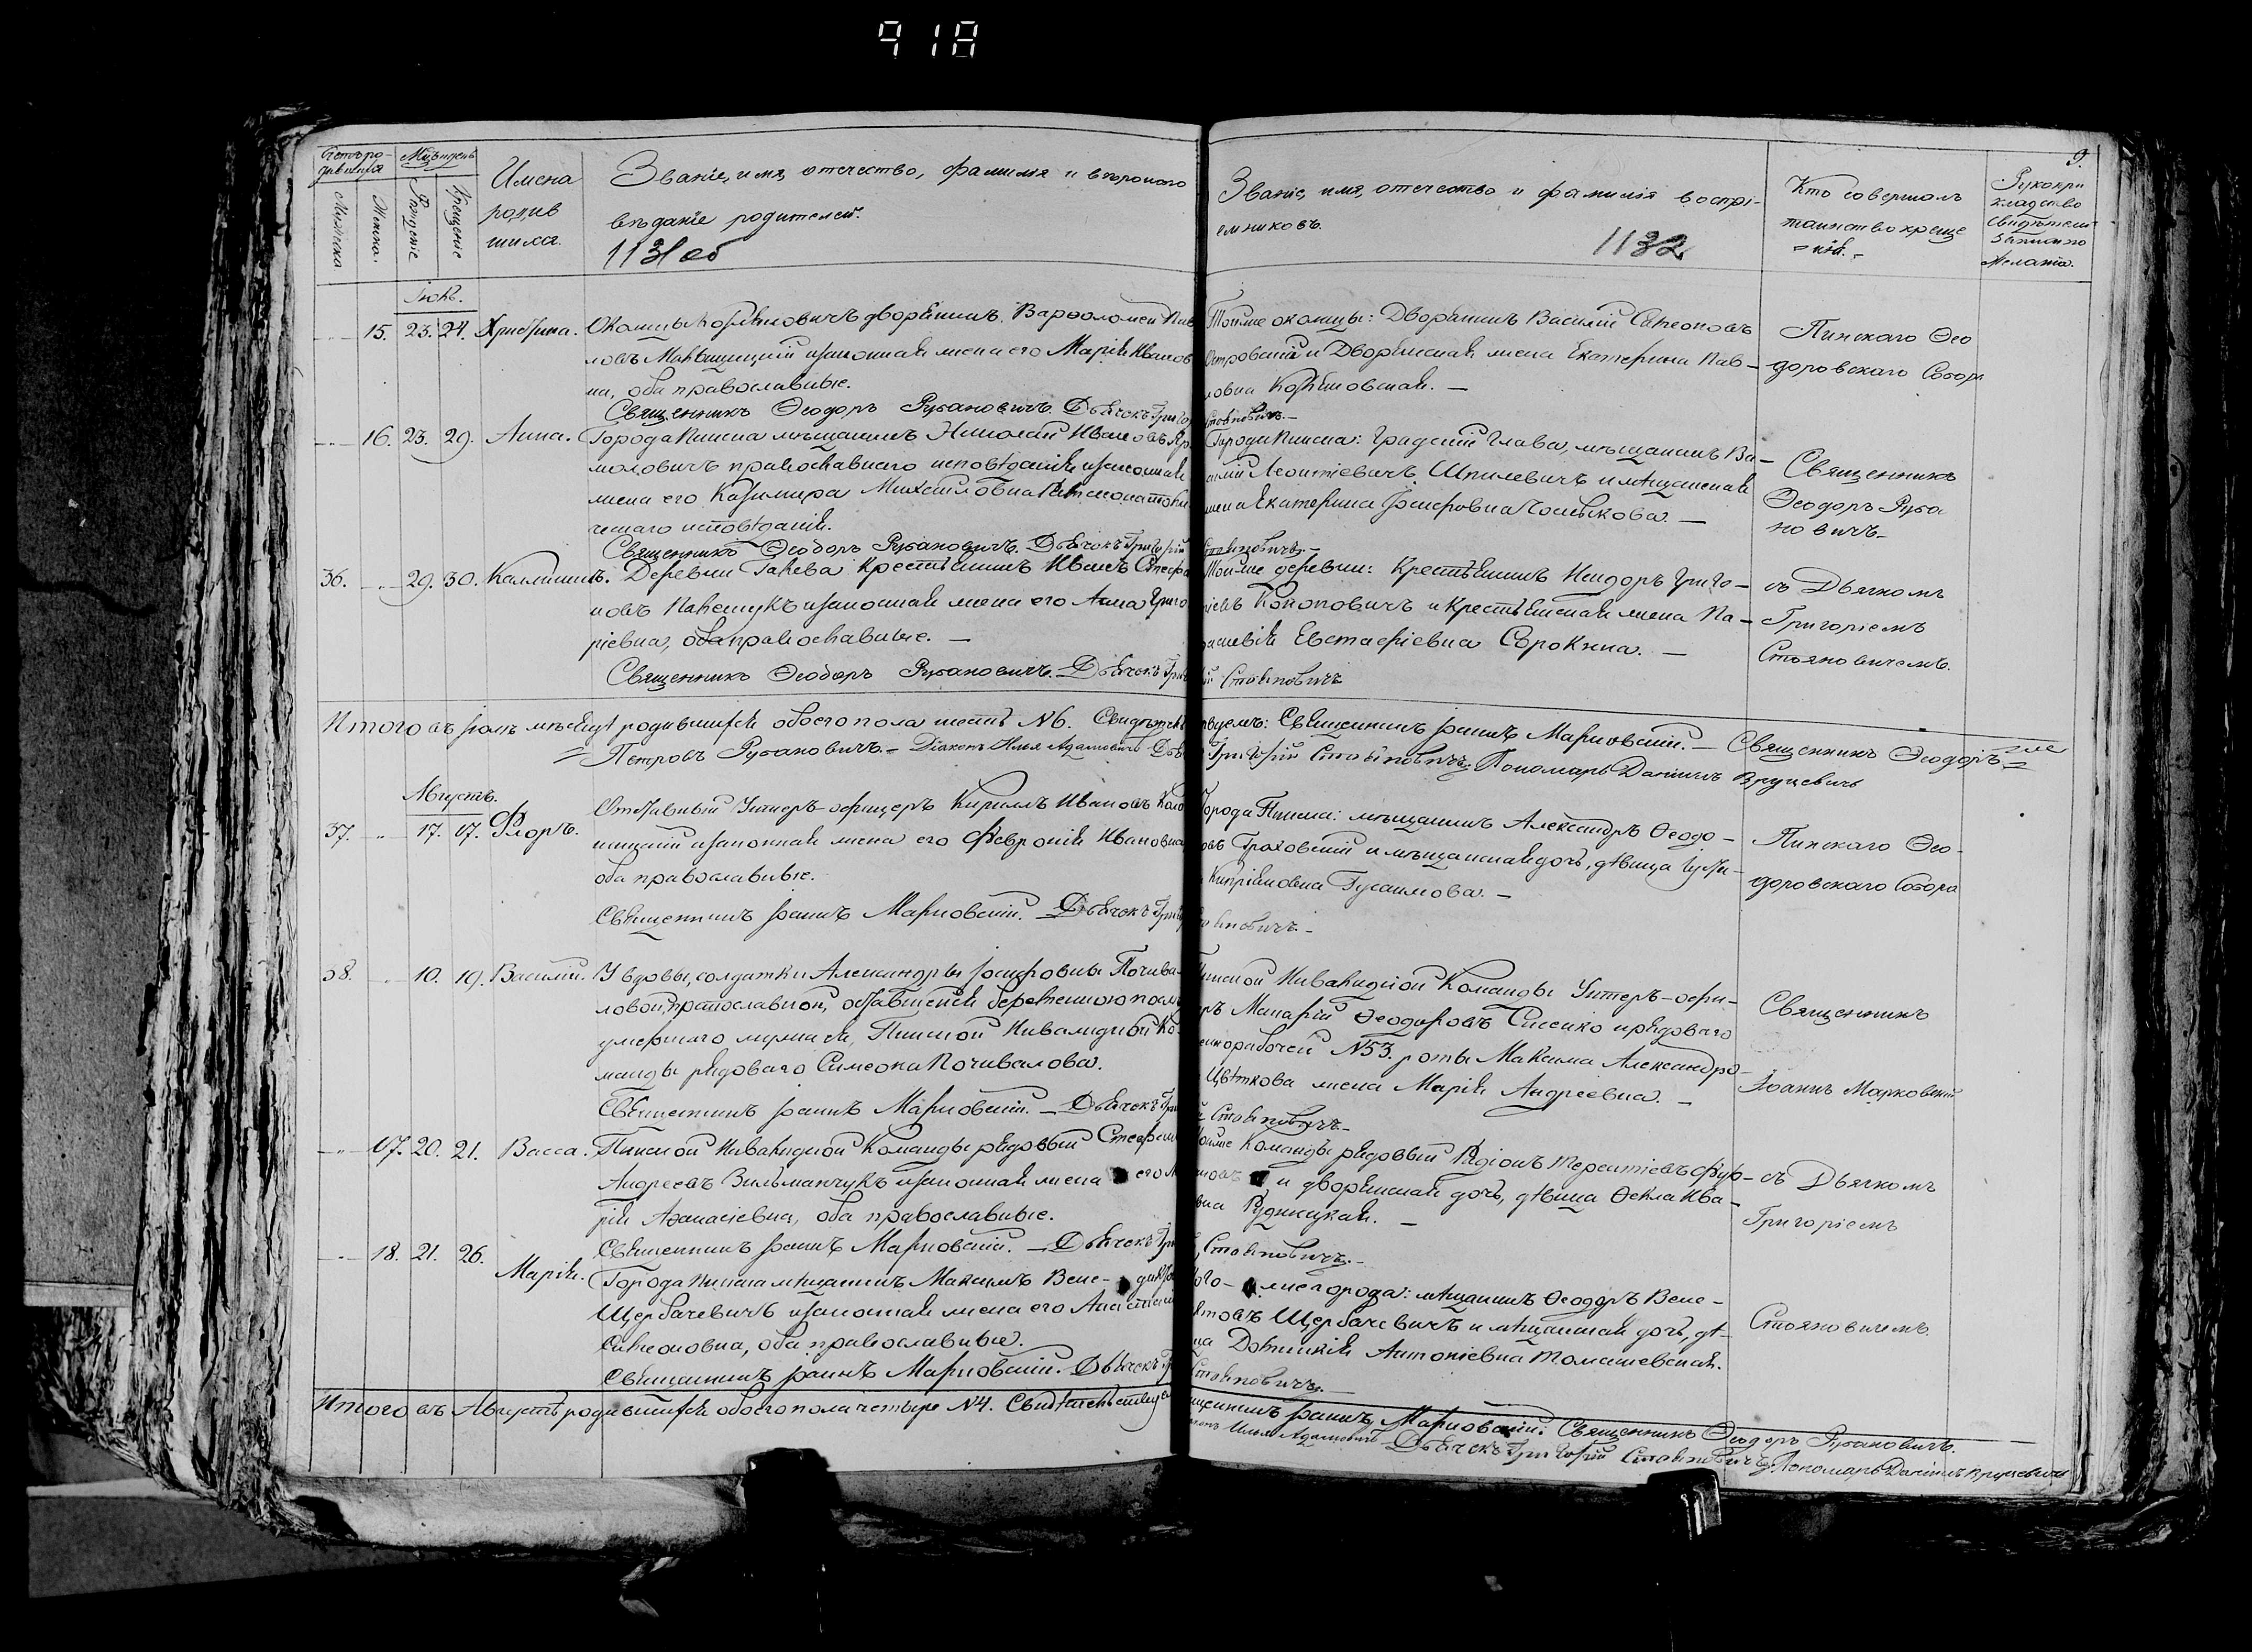 918
9.
Счетъ ро-
дившихся
Мѣц. и день
Имена
родив
шихся.
Званіе, имя, отечество, фамилія и вѣроиспо
вѣданіе родителей.
1131 об
Мужеска
Женска.
Рожденіе
Крещеніе
Званіе, имя, отечество и фамилія воспрі-
емниковъ.
1132
Кто совершалъ
таинство креще
=нія.-
Рукопри
кладство
свидѣтелей
записи по
желанію.
Іюль.
15. 23. 24. Христина. Околицы дворянинъ Варѳоломей Пав
ловъ и законная жена его Марія Иванов
на, оба православные.
Священникъ Ѳеодоръ Рубановичъ. Дьячекъ Григо
Тойже околицы: Дворянинъ Василій Симеоновъ
Островскій и Дворянская жена Екатерина Пав-
ловна —
Стояновичъ.—
Пинскаго Ѳео
доровскаго Собора
16. 23. 29. Анна. Города Пинска мѣщанинъ Николай Ивановъ Яр
моловичъ православнаго исповѣданія и законная
жена его Казимира Михайловна Римскокатоли
ческаго исповѣданія.
Священникъ Ѳеодоръ Рубановичъ. Дьячекъ Григорій
Города Пинска: Градскій Глава, мѣщанинъ Ва-
силій Леонтіевичъ Шпилевичъ и мѣщанская
жена Екатерина —
Стояновичъ.—
Священникъ
Ѳеодоръ Руба
новичъ
36. 29. 30. Каллиникъ. Деревни Крестьянинъ Иванъ Стефа
новъ и законная жена его Анна Григо
ріевна, оба православные. —
Священникъ Ѳеодоръ Рубановичъ. Дьячекъ Григо
Тойже деревни: Крестьянинъ Исидоръ Григо-
ріевъ Кононовичъ и Крестьянская жена Па-
раскевія Евстафіевна Сорокина. —
рій Стояновичъ
съ Дьячкомъ
Григоріемъ
Стояновичемъ.
Итого въ Іюлѣ мѣсяцѣ родившихся обоего пола шесть №6. Свидѣтель
ствуемъ: Священникъ Іоаннъ Марковскій. — Священникъ Ѳеодоръ
= Петровъ Рубановичъ.— Діаконъ Илья Адамовичъ Дьяч
Григорій Стояновичъ Пономарь Даніилъ Вруцевичъ
Августъ.
37. 17. 17. Флоръ. Отставный Унтеръ-офицеръ Кириллъ Ивановъ
и законная жена его Февронія Ивановна
оба православные.
Священникъ Іоаннъ Марковскій. Дьячекъ Григо
Города Пинска: мѣщанинъ Александръ Ѳеодо-
ровъ Граховскій и мѣщанская дочь, дѣвица
Кипріяновна —
Стояновичъ.—
Пинскаго Ѳео-
доровскаго Собора
38. 10. 19. Василій. У вдовы, солдатки Александры Іосифовны Почива
ловой, православной, оставшейся беременною послѣ
умершаго мужа ея, Пинской Инвалидной Ко-
манды рядоваго Симеона Почивалова.
Священникъ Іоаннъ Марковскій. — Дьячекъ Григ
Пинской Инвалидной Команды Унтеръ-офи-
церъ Макарій Ѳеодоровъ и рядоваго
рабочей №53. роты Максима Александро-
Цвѣткова жена Марія Андреевна. —
Стояновичъ.—
Священникъ
Іоаннъ Марковскій
17. 20. 21. Васса. Пинской Инвалидной Команды рядовый Стефанъ
Андреевъ Вильманчукъ и законная жена его Ма
рія Аѳанасіевна, оба православные.
Священникъ Іоаннъ Марковскій. — Дьячекъ Григ
Тойже Команды рядовый Терентіевъ
и дворянская дочь, дѣвица Ѳекла Ива-
вна Рудницкая. —
Стояновичъ.—
съ Дьячкомъ
Григоріемъ
18. 21. 26. Марія. Города Пинска мѣщанинъ Максимъ Вене-диктовъ
Щербачевичъ и законная жена его Анастасія
Симеоновна, оба православные.
Священникъ Іоаннъ Марковскій. Дьячекъ Гр
Того-же города: мѣщанинъ Ѳеодоръ Вене-
диктовъ Щербачевичъ и мѣщанская дочь, дѣ-
вица Доминикія Антоніевна Томашевская.
Стояновичъ.—
Стояновичемъ.
Итого въ Августѣ родившихся обоего пола четыре №4. Свидѣтельствуемъ
Священникъ Іоаннъ Марковскій. Священникъ Ѳеодоръ Рубановичъ.
Діаконъ Илья Адамовичъ Дьячекъ Григорій Стояновичъ Пономарь Даніилъ Вруцевичъ